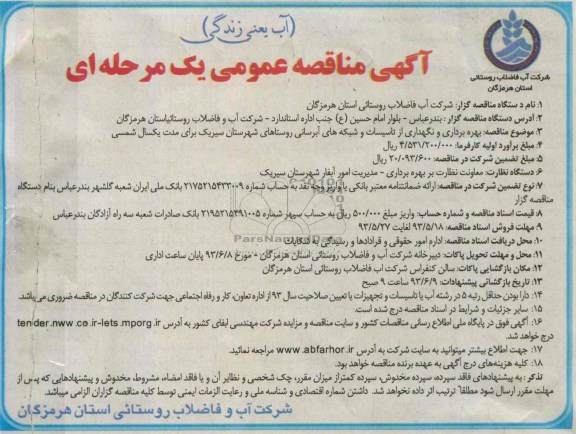 (آب یعنی زندگی)
آگهی مناقصه عمومی یک مرحله ای
شرکت آب فاضلاب روستائی
استان هرمزگان
۱. نام دستگاه مناقصه گزار: شرکت آب فاضلاب روستائی استان هرمزگان
۲. آدرس دستگاه مناقصه گزار: بندرعباس - بلوار امام حسین (ع) جنب اداره استاندارد - شرکت آب و فاضلاب روستائیاستان هرمزگان
۳. موضوع مناقصه: بهره برداری و نگهداری از تاسیسات و شبکه های آبرسانی روستاهای شهرستان سیریک برای مدت یکسال شمسی
۴. مبلغ برآورد اولیه کارفرما: ۴/۵۳۱/۲۰۰/۰۰۰ ریال
۵. مبلغ تضمین شرکت در مناقصه: ۲۰/۰۹۳/۶۰۰ ریال
۶. دستگاه نظارت: معاونت نظارت بر بهره برداری - مدیریت امور آبفار شهرستان سیریک
۷. نوع تضمین شرکت در مناقصه: ارائه ضمانتنامه معتبر بانکی یا واریز وجه نقد به حساب شماره ۲۱۷۵۲۱۵۴۳۳۰۰۹ بانک ملی ایران شعبه گلشهر بندرعباس بنام دستگاه
مناقصه گزار
۸. قیمت اسناد مناقصه و شماره حساب: واریز مبلغ ۵۰۰/۰۰۰ ریال به حساب سپهر شماره ۲۱۹۵۲۱۵۴۹۱۰۰۵ بانک صادرات شعبه سه راه آزادگان بندرعباس
۹. مهلت فروش اسناد مناقصه: ۹۳/۵/۱۸ لغایت ۹۳/۵/۲۷
۱۰. محل دریافت اسناد مناقصه: اداره امور حقوقی و قرادادها و رسیدگی به شکایات
۱۱. محل و مهلت تحویل پاکات: دبیرخانه شرکت آب و فاضلاب روستائی استان هرمزگان - مورخ ۹۳/۶/۸ پایان ساعت اداری
۱۲. مکان بازگشایی پاکات: سالن کنفرانس شرکت آب فاضلاب روستائی استان هرمزگان
۱۳. تاریخ بازگشائی پیشنهادات: ۹۳/۶/۹ ساعت ۹ صبح
۱۴. دارا بودن حداقل رتبه ۵ در رشته آب یا تاسیسات و تجهیزات یا تعیین صلاحیت سال ۹۳ از اداره تعاون، کار و رفاه اجتماعی جهت شرکت کنندگان در مناقصه ضروری می‌باشد.
۱۵. سایر جزئیات و شرایط در اسناد مناقصه درج شده است.
۱۶. آگهی فوق در پایگاه ملی اطلاع رسانی مناقصات کشور و سایت مناقصه و مزایده شرکت مهندسی ابفای کشور به آدرس tender.nww.co.ir-iets.mporg.ir
درج خواهد شد.
۱۷. جهت اطلاع بیشتر میتوانید به سایت شرکت به آدرس www.abfarhor.ir مراجعه نمائید.
۱۸. کلیه هزینه‌های درج آگهی به عهده برنده مناقصه خواهد بود.
تذکر: به پیشنهادهای فاقد سپرده، سپرده مخدوش، سپرده کمتراز میزان مقرر، چک شخصی و نظایر آن و یا فاقد امضاء، مشروط، مخدوش و پیشنهادهایی که پس از
مهلت مقرر ارسال شود مطلقاً ترتیب اثر داده نخواهد شد. داشتن شماره اقتصادی و شناسه ملی و رعایت الزامات ایمنی توسط کلیه مناقصه گزاران الزامی میباشد.
شرکت آب و فاضلاب روستائی استان هرمزگان